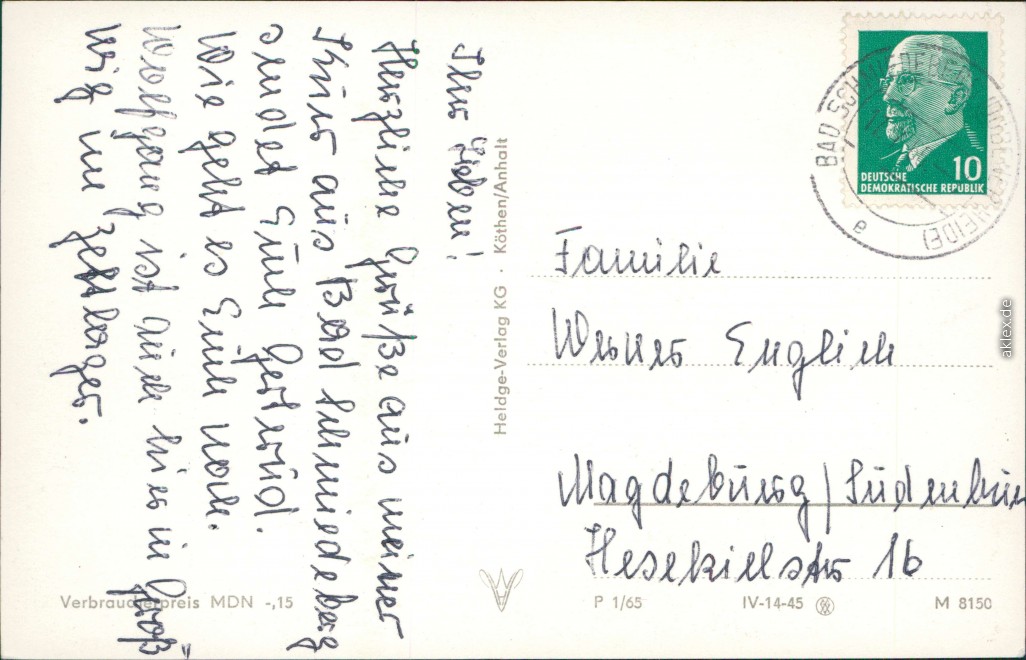 Ihr Lieben!
Herzliche Grüße aus meiner
Kur aus Bad Schmiedeberg
sendet Euch Gertrud.
Wie geht es Euch noch.
Wolfgang ist auch hier in Groß"
wig im Zeltlager.
Verbraucherpreis MDN -,15
Heldge-Verlag KG · Köthen/Anhalt
BAD SCHMIEDEBERG
HEIDE)
e
10
DEUTSCHE
DEMOKRATISCHE REPUBLIK
Familie
Werner Englich
Magdeburg/Sudenburg
Hesekielstr 16
P 1/65 IV-14-45 M 8150
aklex.de